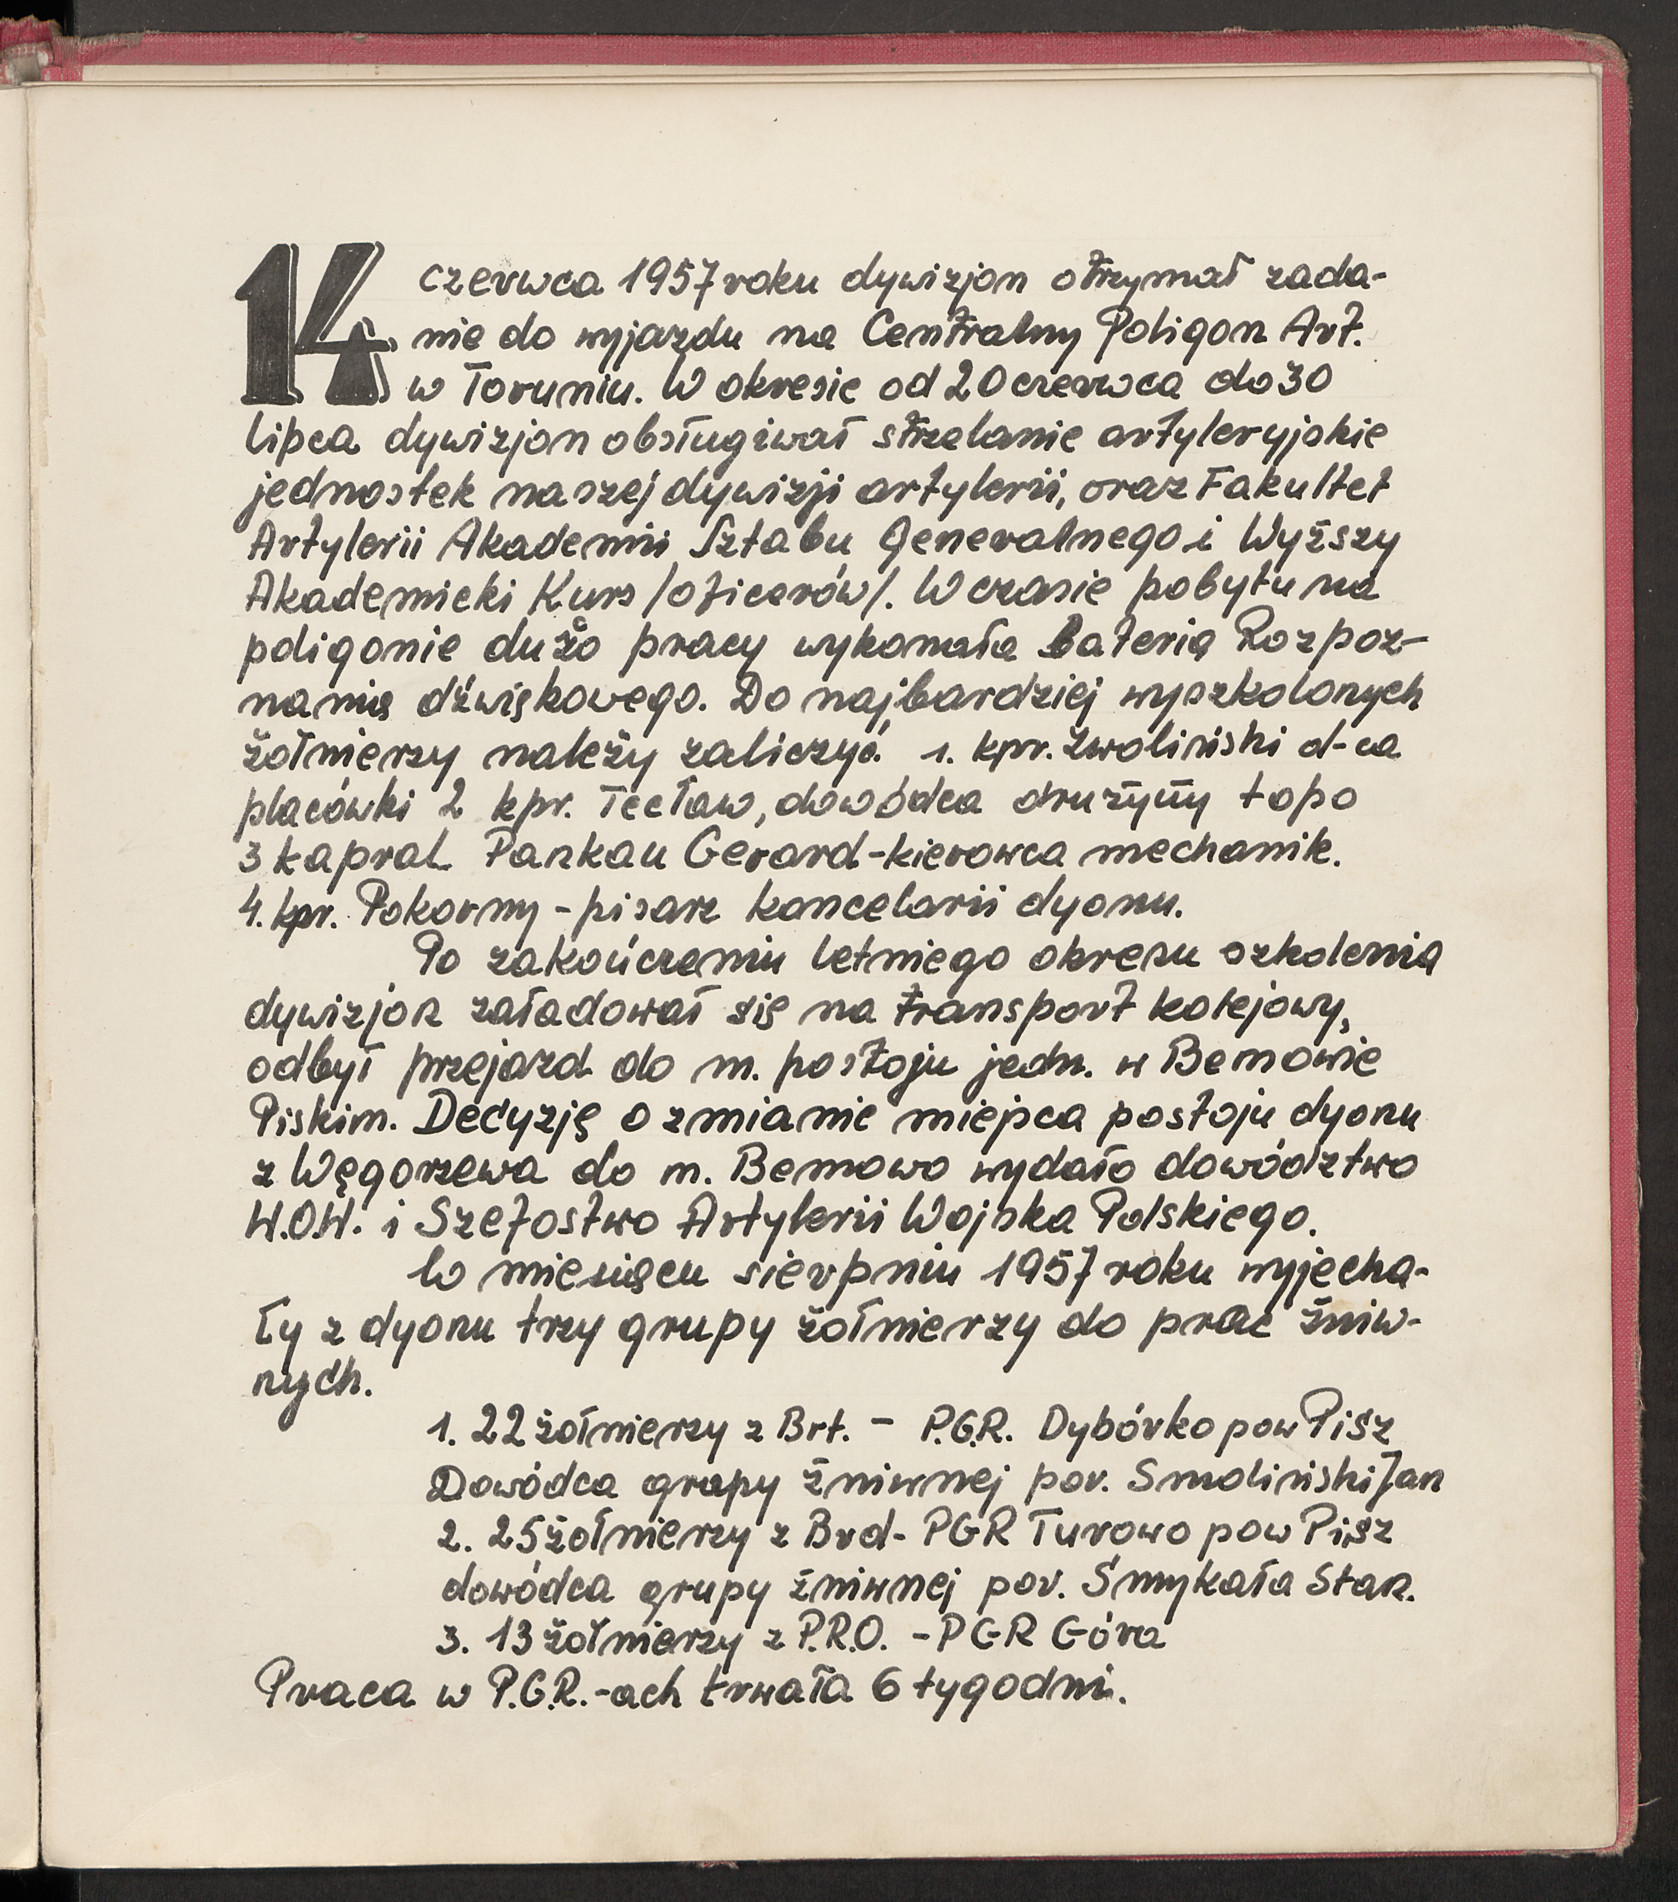 14 czerwca 1957 roku dywizjon otrzymał zada-
nie do wyjazdu na Centralny Poligon Art.
w Toruniu. W okresie od 20 czerwca do 30
lipca dywizjon obsługiwał strzelanie artyleryjskie
jednostek naszej dywizji artylerii, oraz Fakultet
Artylerii Akademii Sztabu Generalnego i Wyższy
Akademicki Kurs /oficerów/. W czasie pobytu na
poligonie dużo pracy wykonała bateria Rozpoz-
nania dźwiękowego. Do najbardziej wyszkolonych
żołnierzy należy zaliczyć. 1. kpr. Zwoliński d-ca
placówki 2 kpr. Tecław, dowódca drużyny topo
3 kapral Pankau Gerard-kierowca mechanik.
4. kpr. Pokorny - pisarz kancelarii dyonu.
Po zakończeniu letniego okresu szkolenia
dywizjon załadował się na transport kolejowy,
odbył przejazd do m. postoju jedn. w Bemowie
Piskim. Decyzję o zmianie miejsca postoju dyonu
z Węgorzewa do m. Bemowo wydało dowództwo
W.O.W. i Szefostwo Artylerii Wojska Polskiego.
W miesiącu sierpniu 1957 roku wyjecha-
ły z dyonu trzy grupy żołnierzy do prac żniw-
nych.
1. 22 żołnierzy z Brt. - P.G.R. Dybówko pow Pisz
Dowódca grupy żniwnej por. Smoliński Jan
2. 25 żołnierzy z Brd - PGR Turowo pow Pisz
dowódca grupy żniwnej por. Smykała Stan.
3. 13 żołnierzy z P.R.O. - PGR Góra
Praca w P.G.R.-ach trwała 6 tygodni.